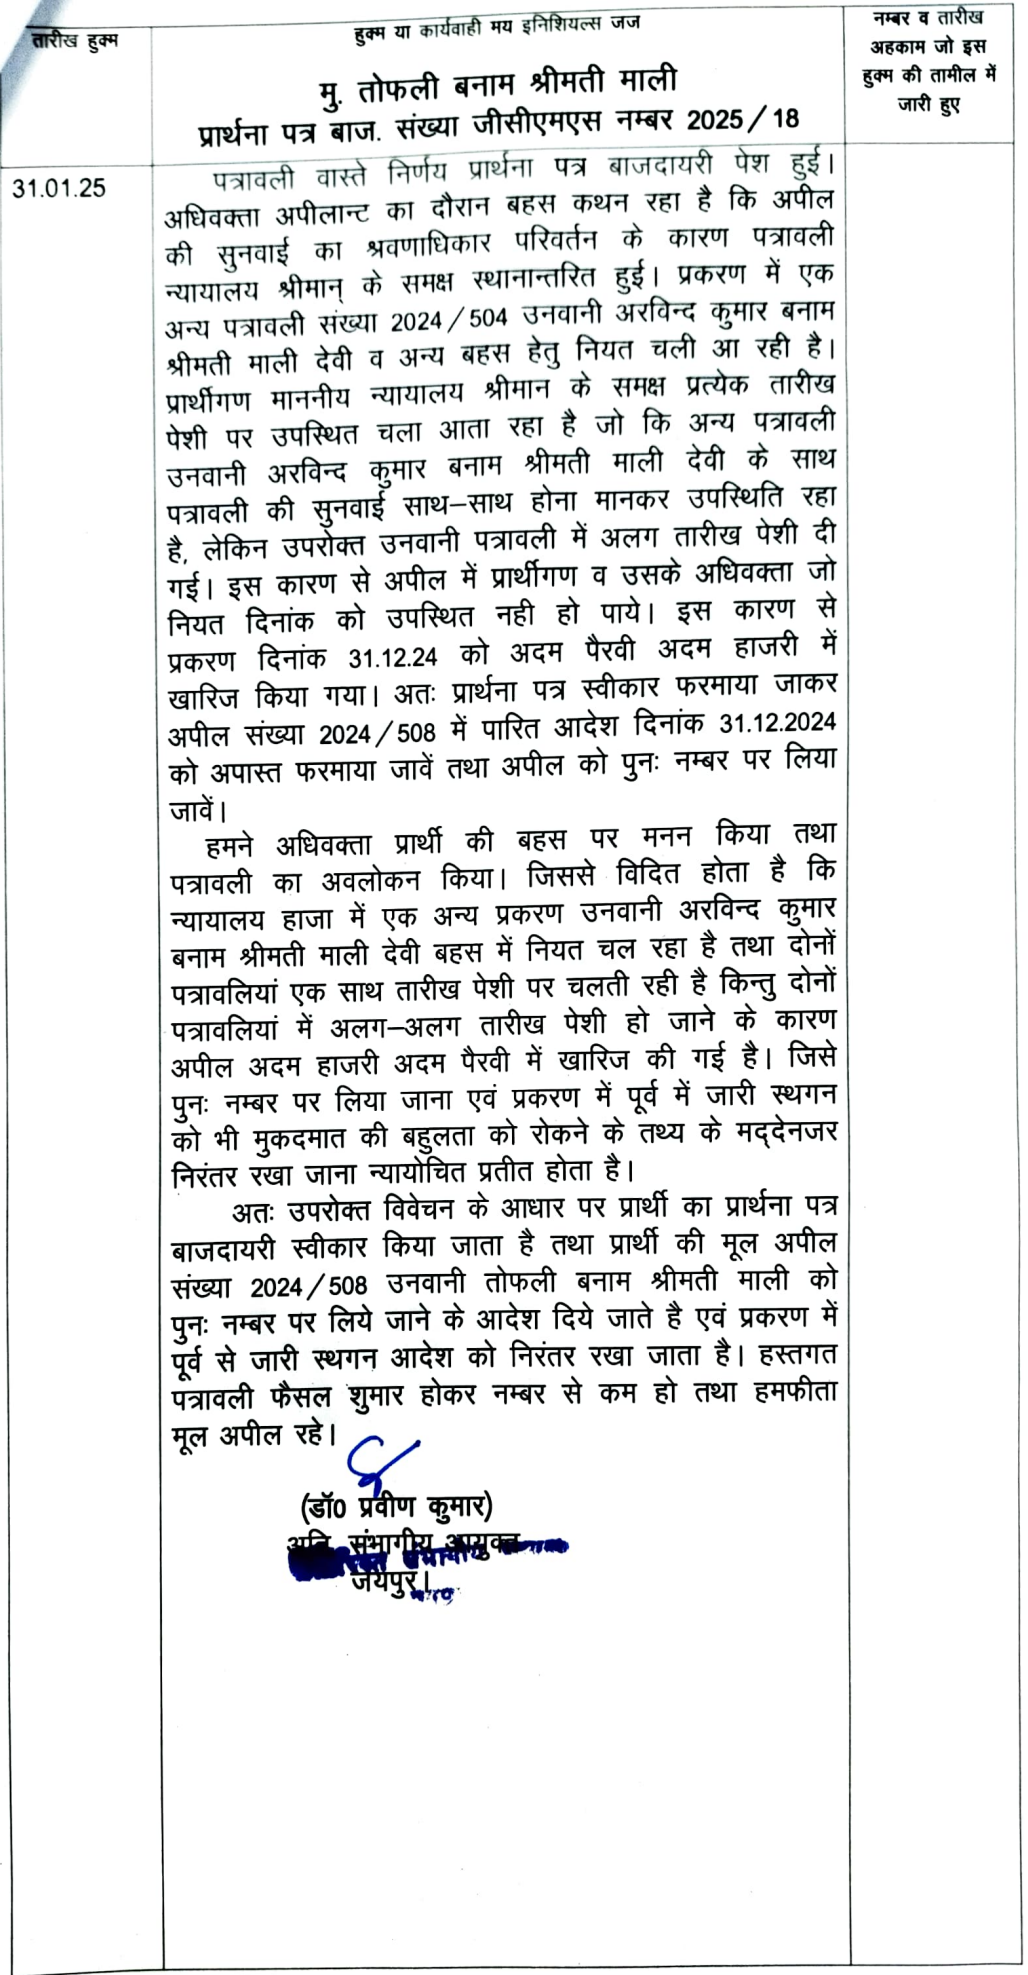 तारीख हुक्म
हुक्म या कार्यवाही मय इनिशियल्स जज
नम्बर व तारीख
अहकाम जो इस
हुक्म की तामील में
जारी हुए
मु. तोफली बनाम श्रीमती माली
प्रार्थना पत्र बाज. संख्या जीसीएमएस नम्बर 2025/18
31.01.25
पत्रावली वास्ते निर्णय प्रार्थना पत्र बाजदायरी पेश हुई।
अधिवक्ता अपीलान्ट का दौरान बहस कथन रहा है कि अपील
की सुनवाई का श्रवणाधिकार परिवर्तन के कारण पत्रावली
न्यायालय श्रीमान् के समक्ष स्थानान्तरित हुई। प्रकरण में एक
अन्य पत्रावली संख्या 2024/504 उनवानी अरविन्द कुमार बनाम
श्रीमती माली देवी व अन्य बहस हेतु नियत चली आ रही है।
प्रार्थीगण माननीय न्यायालय श्रीमान के समक्ष प्रत्येक तारीख
पेशी पर उपस्थित चला आता रहा है जो कि अन्य पत्रावली
उनवानी अरविन्द कुमार बनाम श्रीमती माली देवी के साथ
पत्रावली की सुनवाई साथ–साथ होना मानकर उपस्थिति रहा
है, लेकिन उपरोक्त उनवानी पत्रावली में अलग तारीख पेशी दी
गई। इस कारण से अपील में प्रार्थीगण व उसके अधिवक्ता जो
नियत दिनांक को उपस्थित नही हो पाये। इस कारण से
प्रकरण दिनांक 31.12.24 को अदम पैरवी अदम हाजरी में
खारिज किया गया। अतः प्रार्थना पत्र स्वीकार फरमाया जाकर
अपील संख्या 2024/508 में पारित आदेश दिनांक 31.12.2024
को अपास्त फरमाया जावें तथा अपील को पुनः नम्बर पर लिया
जावें।
हमने अधिवक्ता प्रार्थी की बहस पर मनन किया तथा
पत्रावली का अवलोकन किया। जिससे विदित होता है कि
न्यायालय हाजा में एक अन्य प्रकरण उनवानी अरविन्द कुमार
बनाम श्रीमती माली देवी बहस में नियत चल रहा है तथा दोनों
पत्रावलियां एक साथ तारीख पेशी पर चलती रही है किन्तु दोनों
पत्रावलियां में अलग–अलग तारीख पेशी हो जाने के कारण
अपील अदम हाजरी अदम पैरवी में खारिज की गई है। जिसे
पुनः नम्बर पर लिया जाना एवं प्रकरण में पूर्व में जारी स्थगन
को भी मुकदमात की बहुलता को रोकने के तथ्य के मद्देनजर
निरंतर रखा जाना न्यायोचित प्रतीत होता है।
अतः उपरोक्त विवेचन के आधार पर प्रार्थी का प्रार्थना पत्र
बाजदायरी स्वीकार किया जाता है तथा प्रार्थी की मूल अपील
संख्या 2024/508 उनवानी तोफली बनाम श्रीमती माली को
पुनः नम्बर पर लिये जाने के आदेश दिये जाते है एवं प्रकरण में
पूर्व से जारी स्थगन आदेश को निरंतर रखा जाता है। हस्तगत
पत्रावली फैसल शुमार होकर नम्बर से कम हो तथा हमफीता
मूल अपील रहे।
(डॉ0 प्रवीण कुमार)
अति. संभागीय आयुक्त
जयपुर।